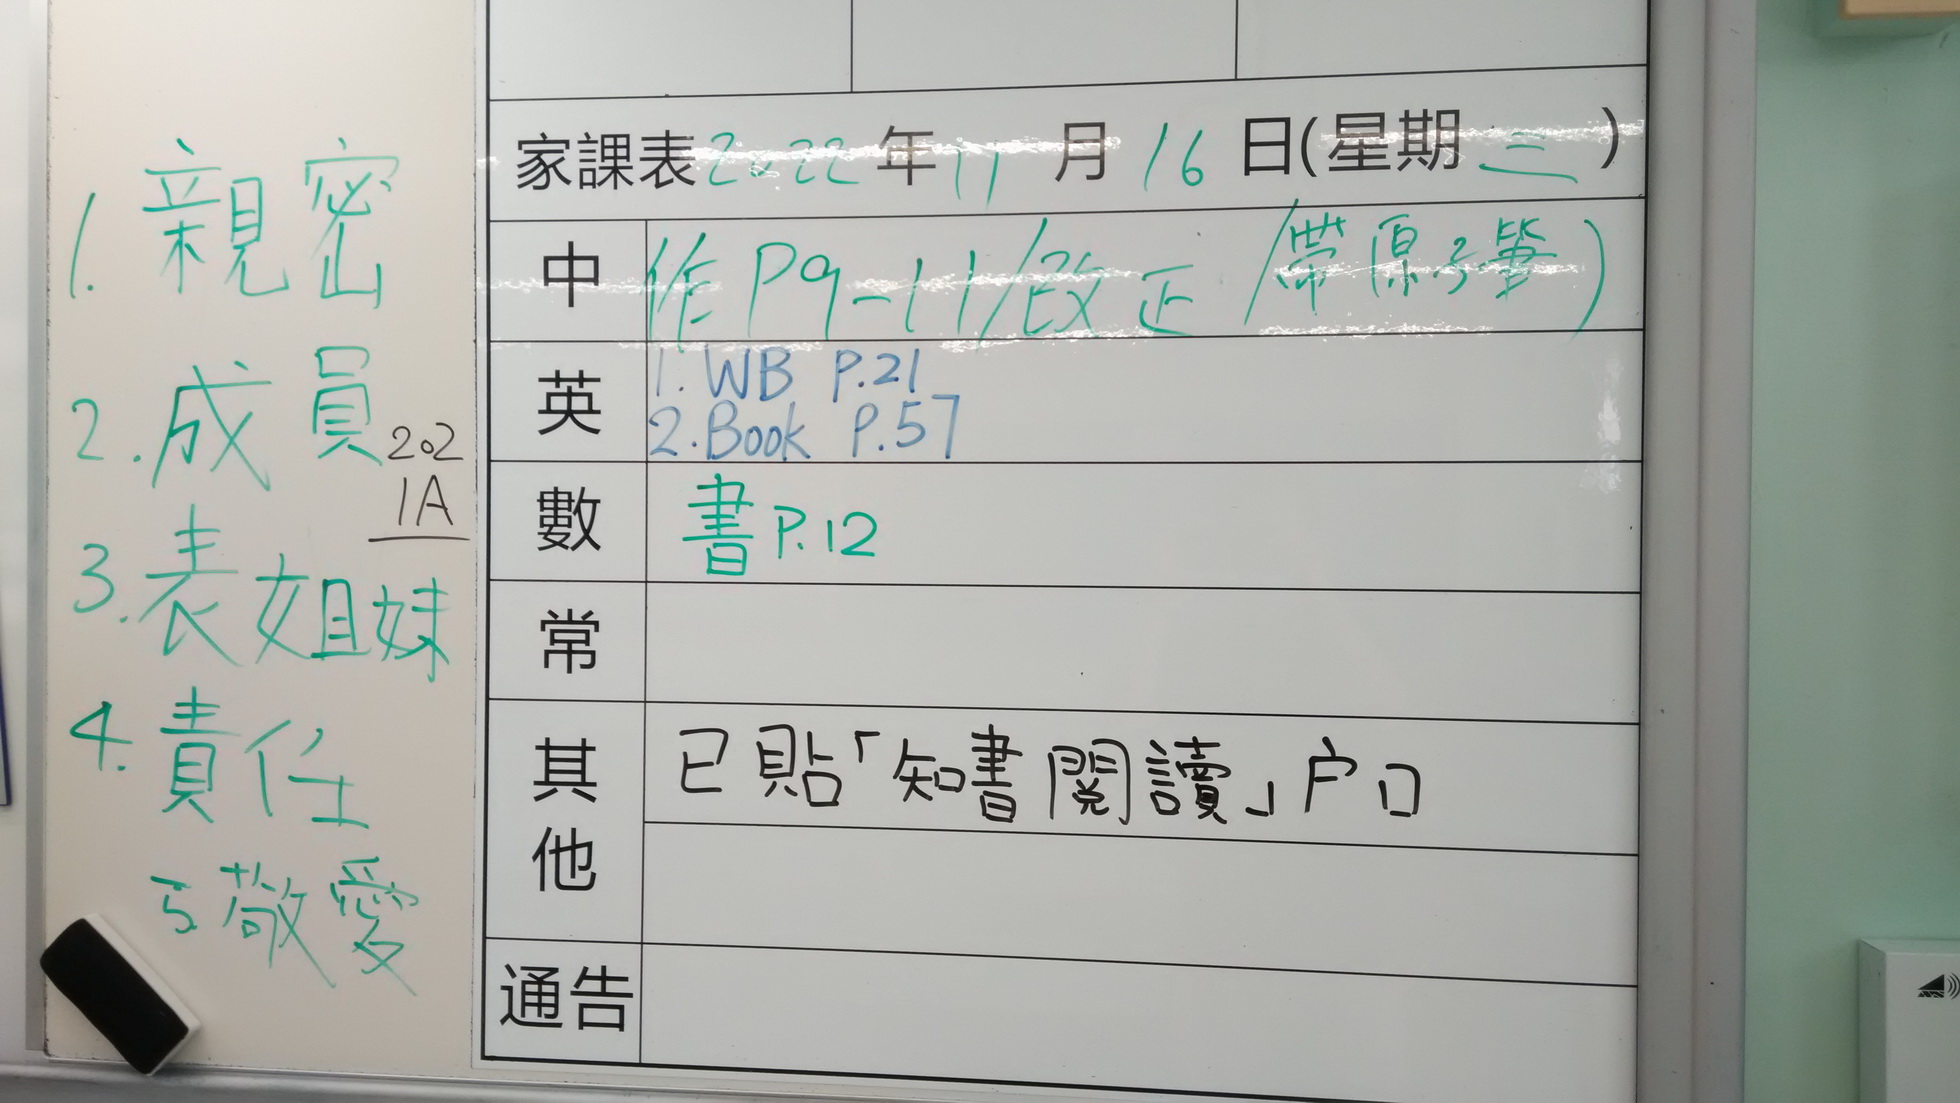 1. 親密
2. 成員
202
1A
3. 表姐妹
4. 責任
5 敬愛
家課表 2022 年 11 月 16 日(星期三)
中 作 P9-11/改正 (帶原子筆)
英 1. WB P.21
2. Book P.57
數 書 P.12
常
其他 已貼「知書閱讀」户口
通告